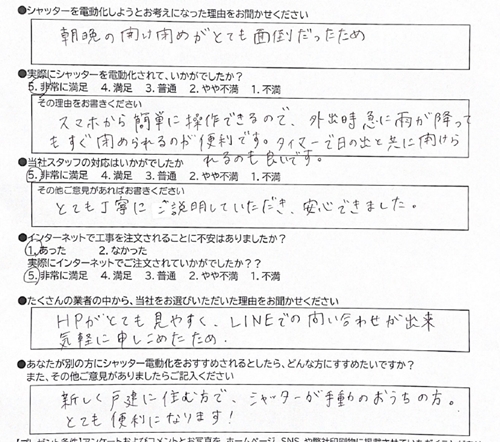 ●シャッターを電動化しようとお考えになった理由をお聞かせください
朝晩の開け閉めがとても面倒だったため
●実際にシャッターを電動化されて、いかがでしたか？
5. 非常に満足　4. 満足　3. 普通　2. やや不満　1. 不満
その理由をお書きください
スマホから簡単に操作できるので、外出時急に雨が降って
もすぐ閉められるのが便利です。タイマーで日の出と共に開けら
れるのも良いです。
●当社スタッフの対応はいかがでしたか
5. 非常に満足　4. 満足　3. 普通　2. やや不満　1. 不満
その他ご意見があればお書きください
とても丁寧にご説明していただき、安心できました。
●インターネットで工事を注文されることに不安はありましたか？
1. あった　2. なかった
実際にインターネットでご注文されていかがでしたか？？
5. 非常に満足　4. 満足　3. 普通　2. やや不満　1. 不満
●たくさんの業者の中から、当社をお選びいただいた理由をお聞かせください
HPがとても見やすく、LINEでの問い合わせが出来
気軽に申しこめたため.
●あなたが別の方にシャッター電動化をおすすめされるとしたら、どんな方にすすめたいですか？
また、その他ご意見がありましたらご記入ください
新しく戸建に住む方で、シャッターが手動のおうちの方。
とても便利になります！